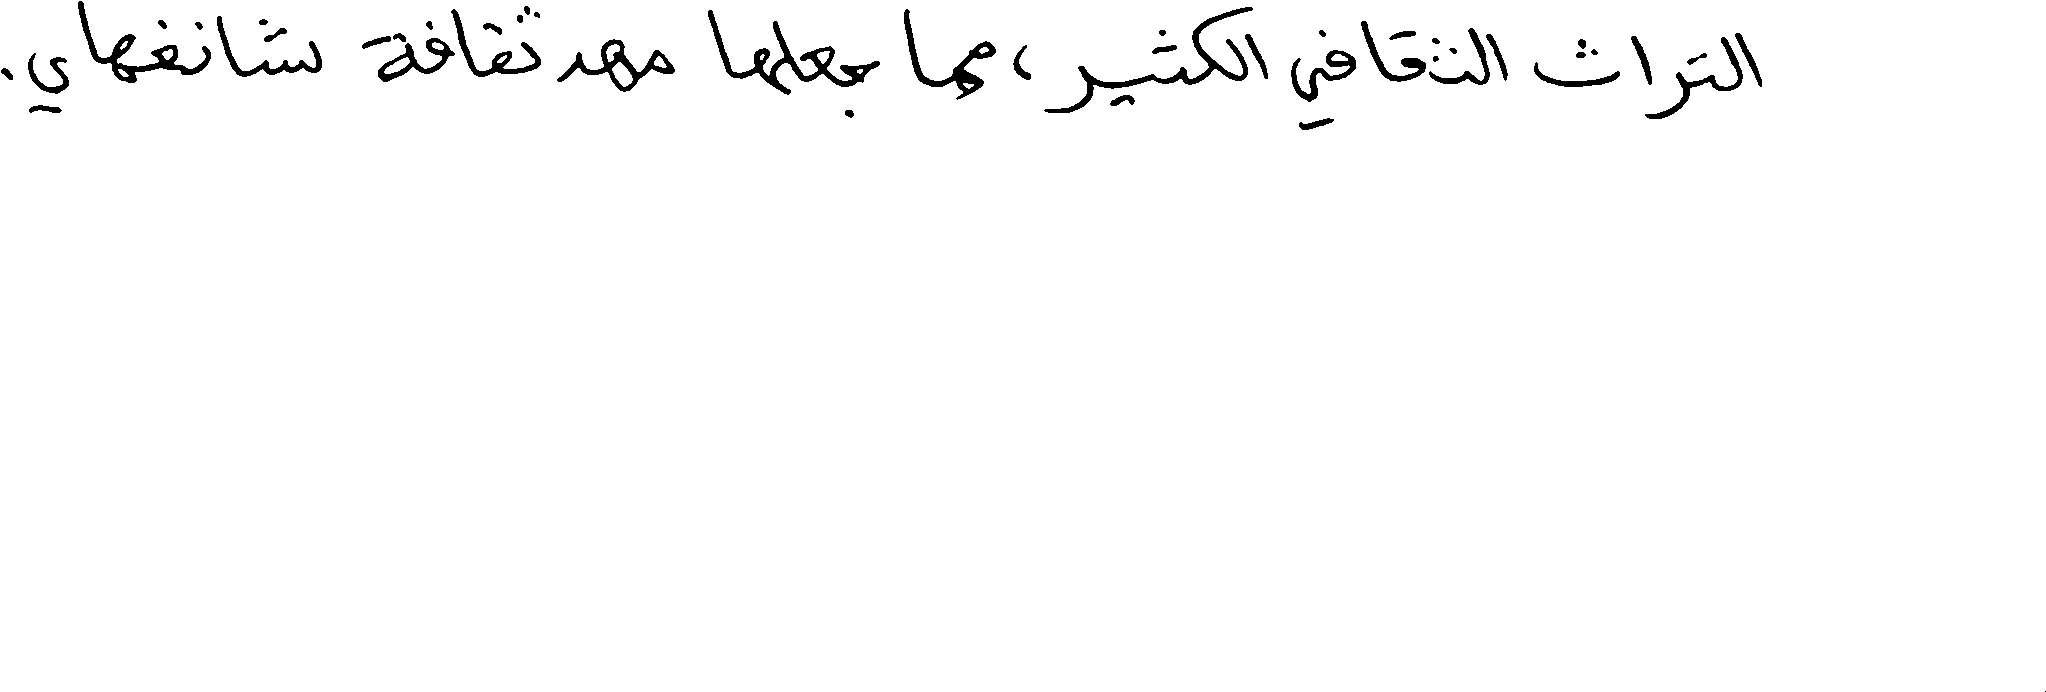 التراث الثقافي الكثير، مما جعلها مهد ثقافة شانغهاي.